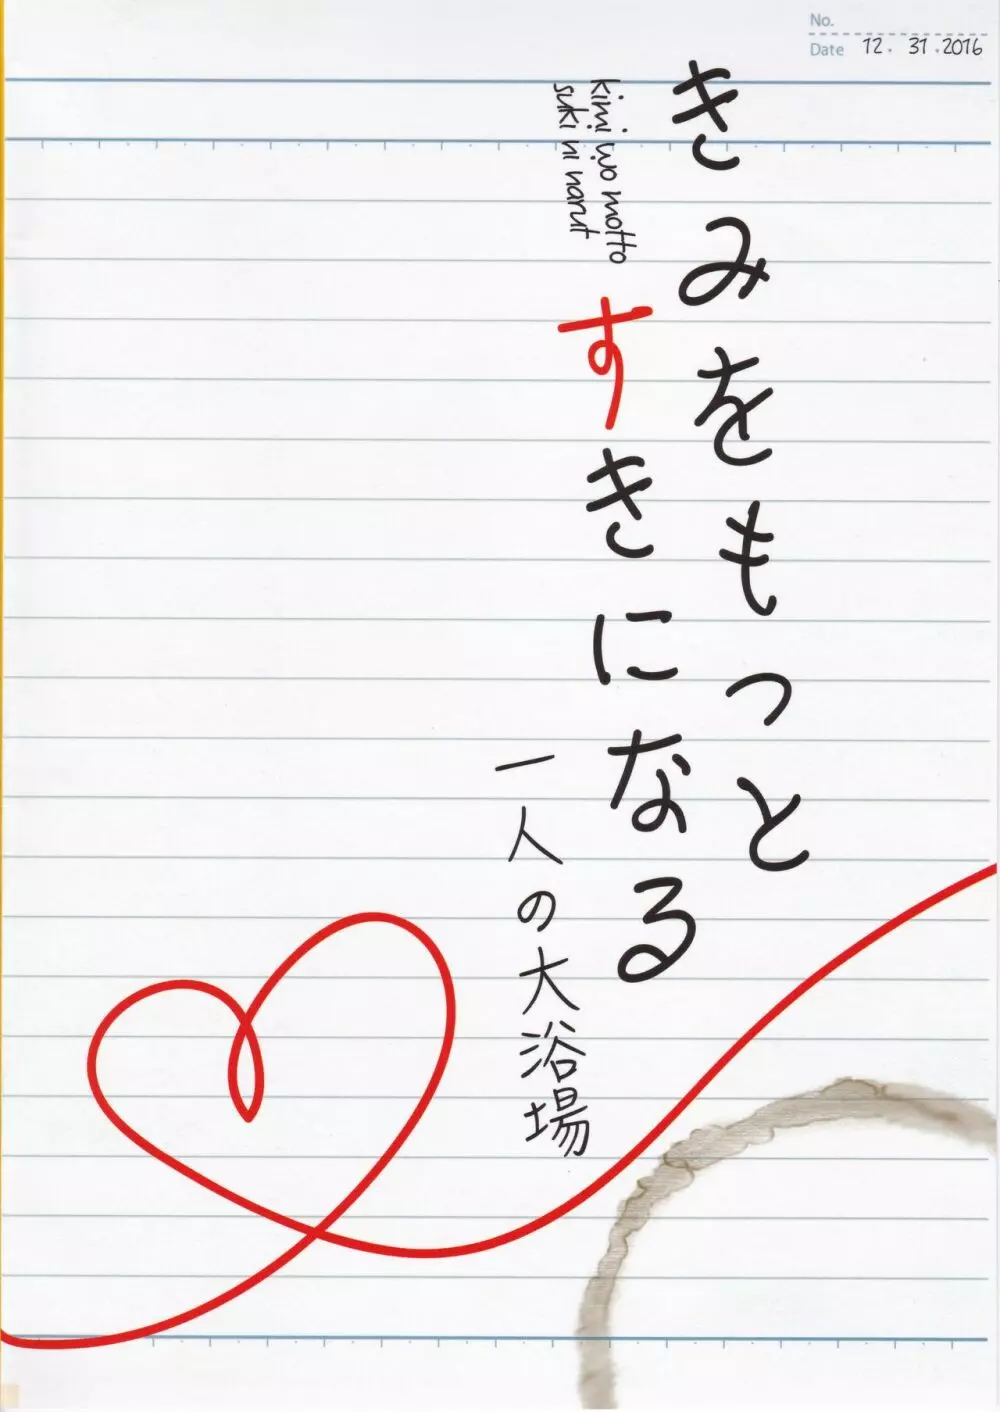 No.
Date 12. 31. 2016
きみをもっと
kimi wo motto
suki ni narut
すきになる
一人の大浴場